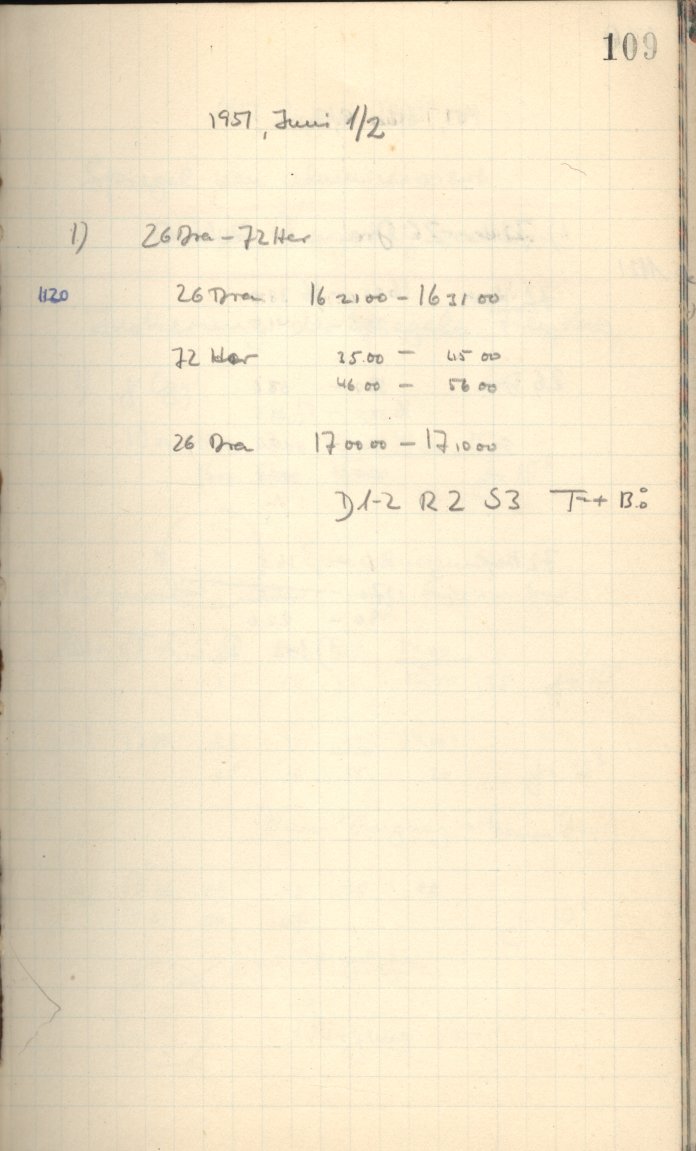 109
1951, Juni 1/2
1) 26 Dra - 72 Her
1120 26 Dra 16 21 00 - 16 31 00
72 Her 35 00 - 45 00
46 00 - 56 00
26 Dra 17 00 00 - 17 10 00
D1-2 R2 S3